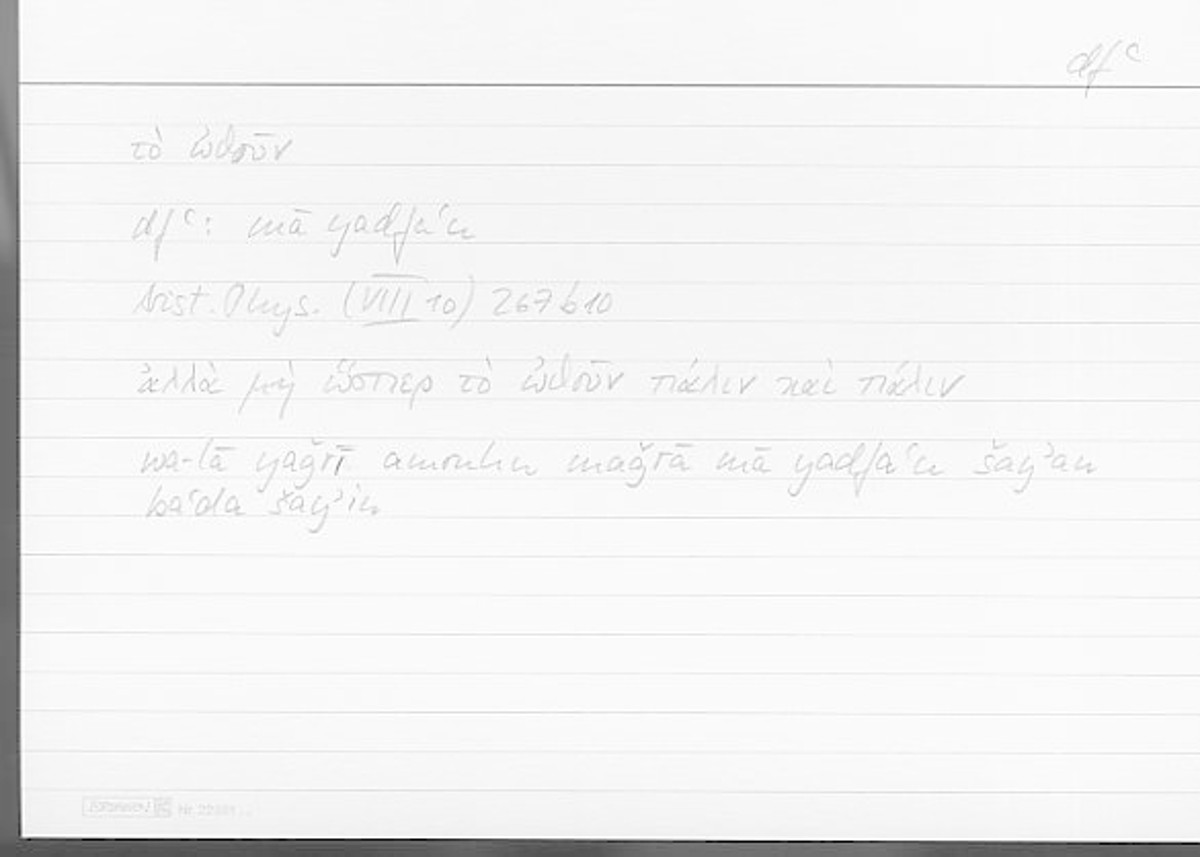 dfʿ
τὸ ὠθοῦν
dfʿ: mā yadfaʿu
Arist. Phys. (VIII 10) 267b10
ἀλλὰ μὴ ὥσπερ τὸ ὠθοῦν πάλιν καὶ πάλιν
wa-lā yaǧrī amruhu maǧrā mā yadfaʿu šayʾan
baʿda šayʾin
Nr.